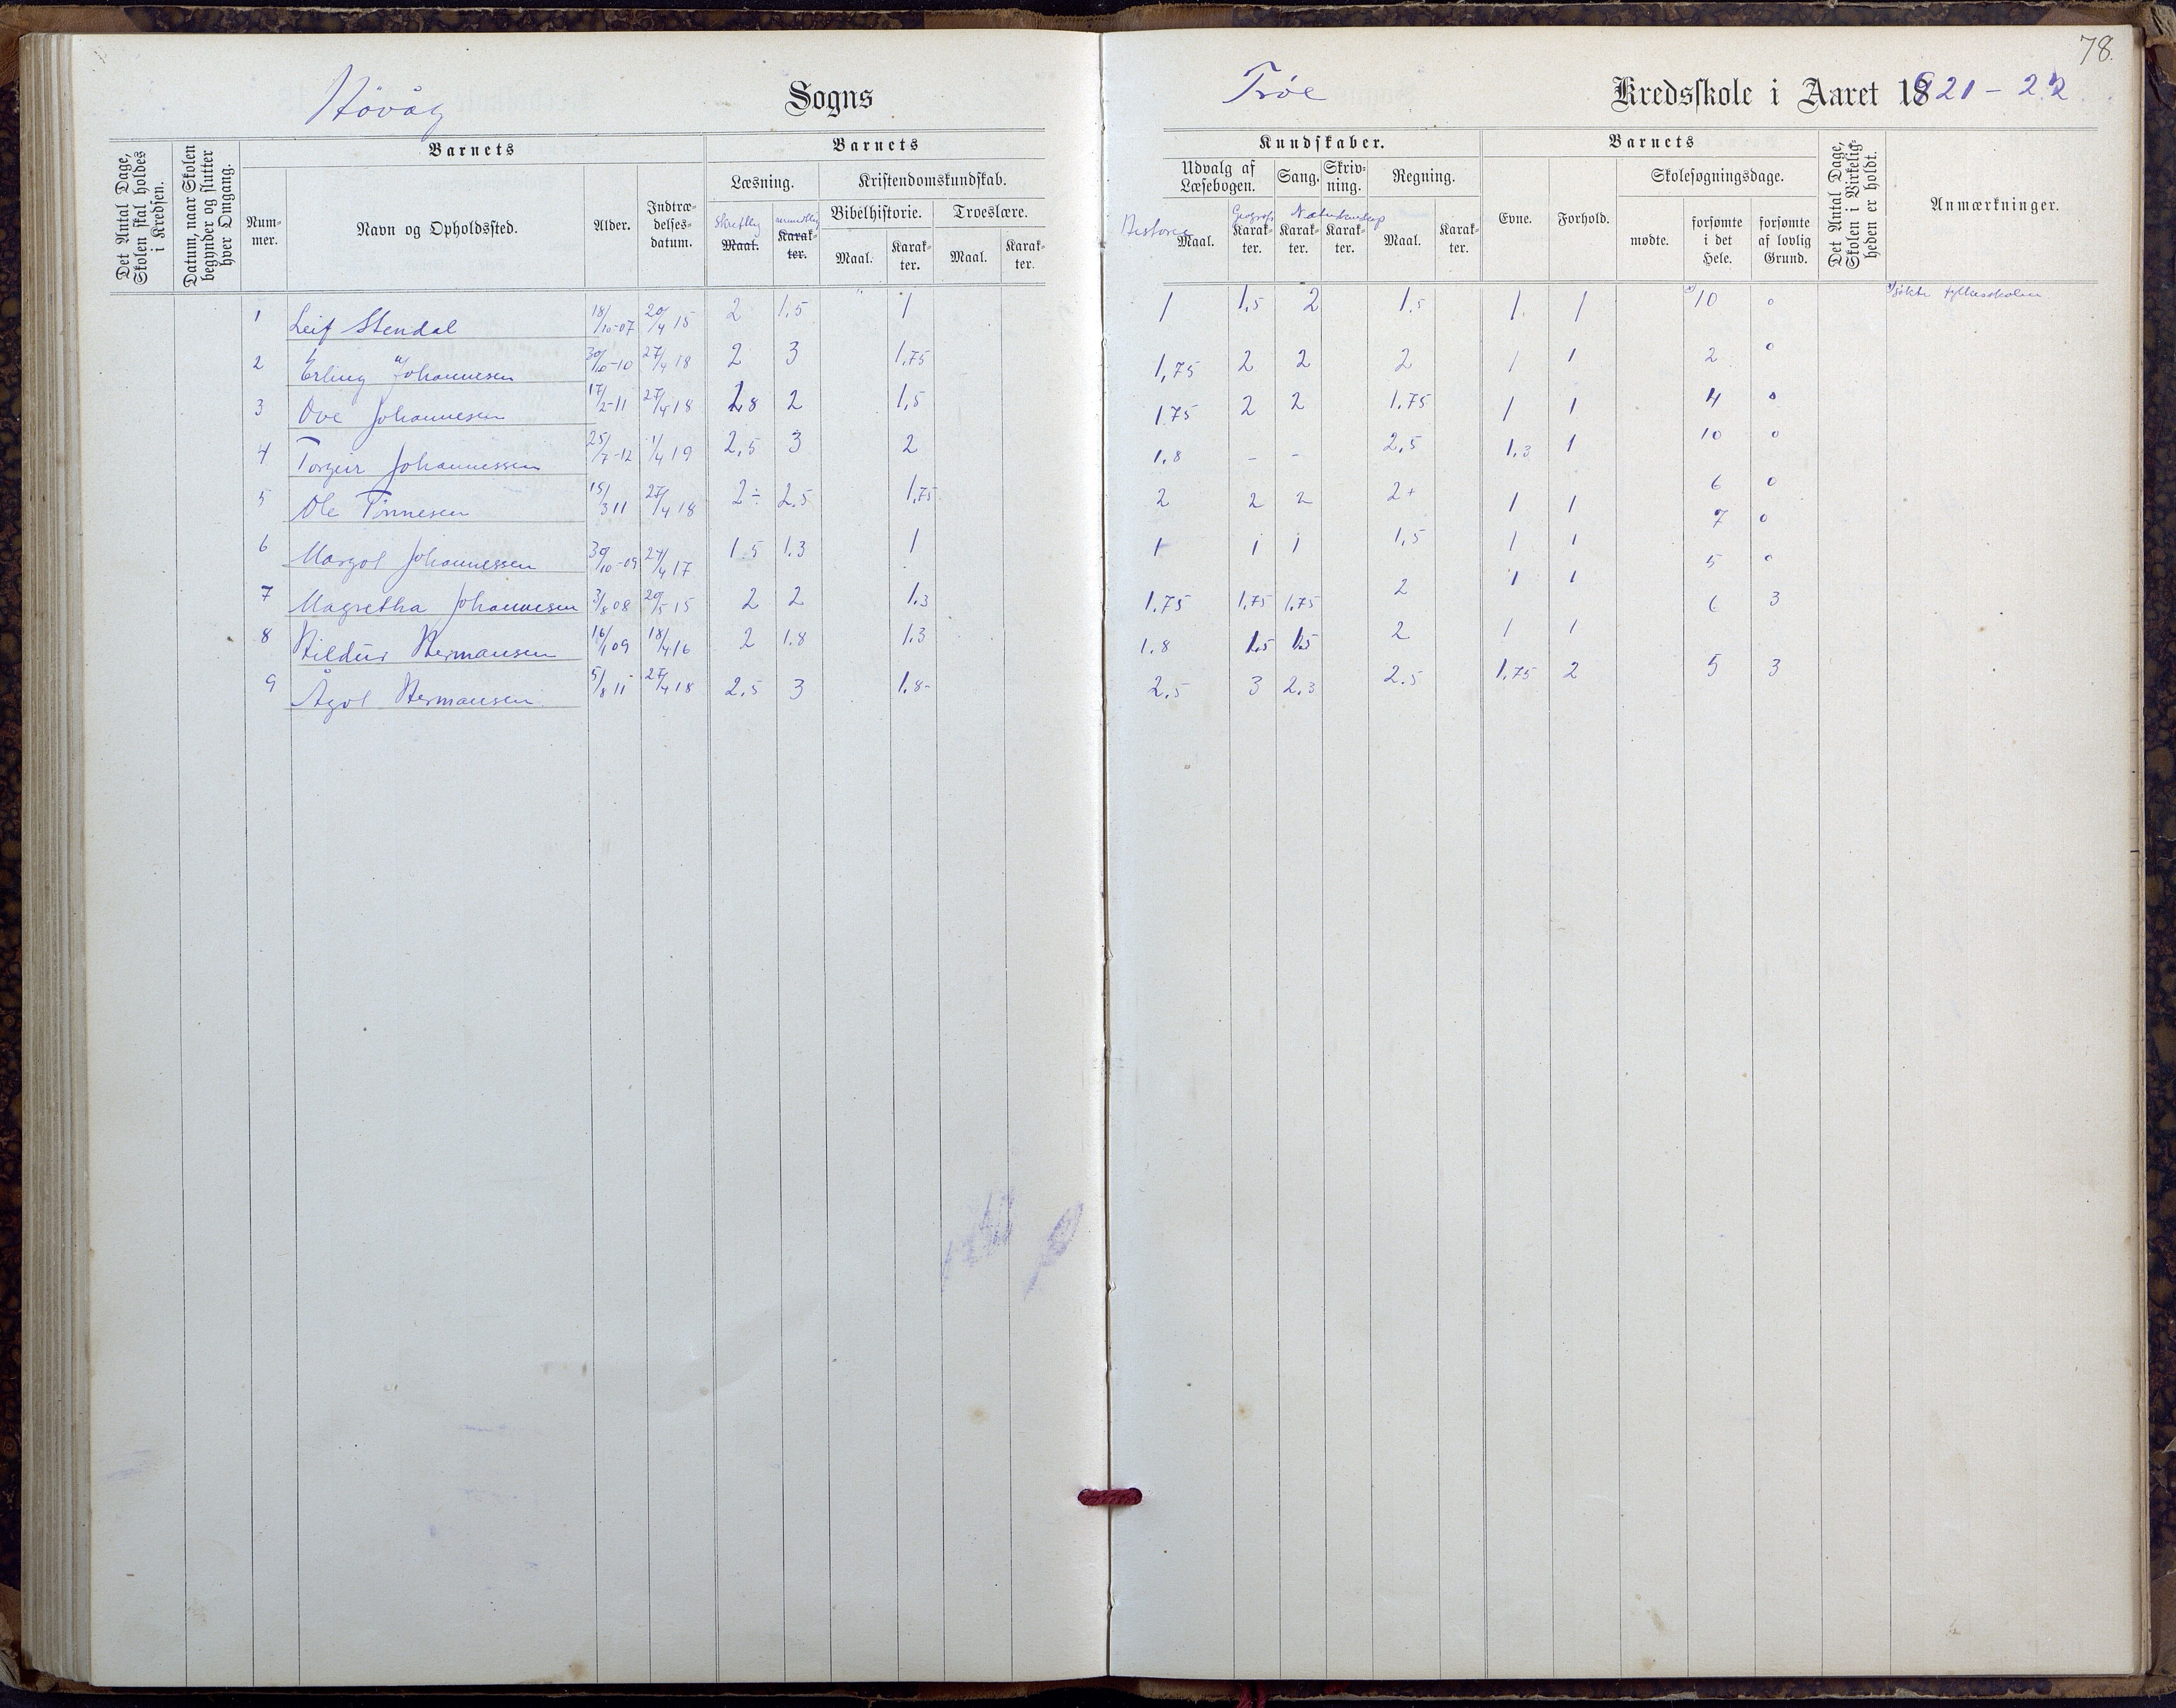 78.
Høvåg Sogns
Trøe Kredsskole i Aaret 1921-22.
Det Antal Dage, Skolen skal holdes i Kredsen.
Datum, naar Skolen begynder og slutter hver Omgang.
Barnets
Nummer.
Navn og Opholdssted.
Alder.
Indtrædelsesdatum.
Barnets
Læsning.
Skriftlig Maal.
mundtlig Karakter.
Kristendomskundskab.
Bibelhistorie.
Maal.
Karakter.
Troeslære.
Maal.
Karakter.
Kundskaber.
Udvalg af Læsebogen.
Historie Maal.
Geografi Karakter.
Sang.
Naturkundskap
Karakter.
Skrivning.
Karakter.
Regning.
Maal.
Karakter.
Barnets
Evne.
Forhold.
Skolesøgningsdage.
mødte.
forsømte i det Hele.
forsømte af lovlig Grund.
Det Antal Dage, Skolen i Virkeligheden er holdt.
Anmærkninger.
1 Leif Stendal 18/10-07 20/4 15 2 1.5 1 1 1,5 2 1.5 1 1 10 0 søkte fylkesskolen
2 Erling Johannesen 30/10-10 27/4 18 2 3 1,75 1,75 2 2 2 1 1 2 0
3 Ove Johannesen 17/2-11 27/4 18 1,8 2 1,5 1.75 2 2 1.75 1 1 4 0
4 Torgeir Johannessen 25/7-12 1/4 19 2,5 3 2 1.8 - - 2,5 1.3 1 10 0
5 Ole Tønnesen 15/3 11 27/4 18 2÷ 2.5 1,75 2 2 2 2+ 1 1 6 0
6 Margot Johannessen 30/10-09 27/4 17 1.5 1.3 1 1 1 1 1,5 1 1 7 0
7 Magretha Johannesen 3/8 08 20/5 15 2 2 1.3 1.75 1,75 1,75 2 1 1 5 0
8 Hildur Hermansen 16/1 09 18/4 16 2 1.8 1.3 1.8 1.5 1.5 2 1 1 6 3
9 Ågot Hermansen 5/8 11 27/4 18 2.5 3 1.8- 2.5 3 2.3 2.5 1,75 2 5 3